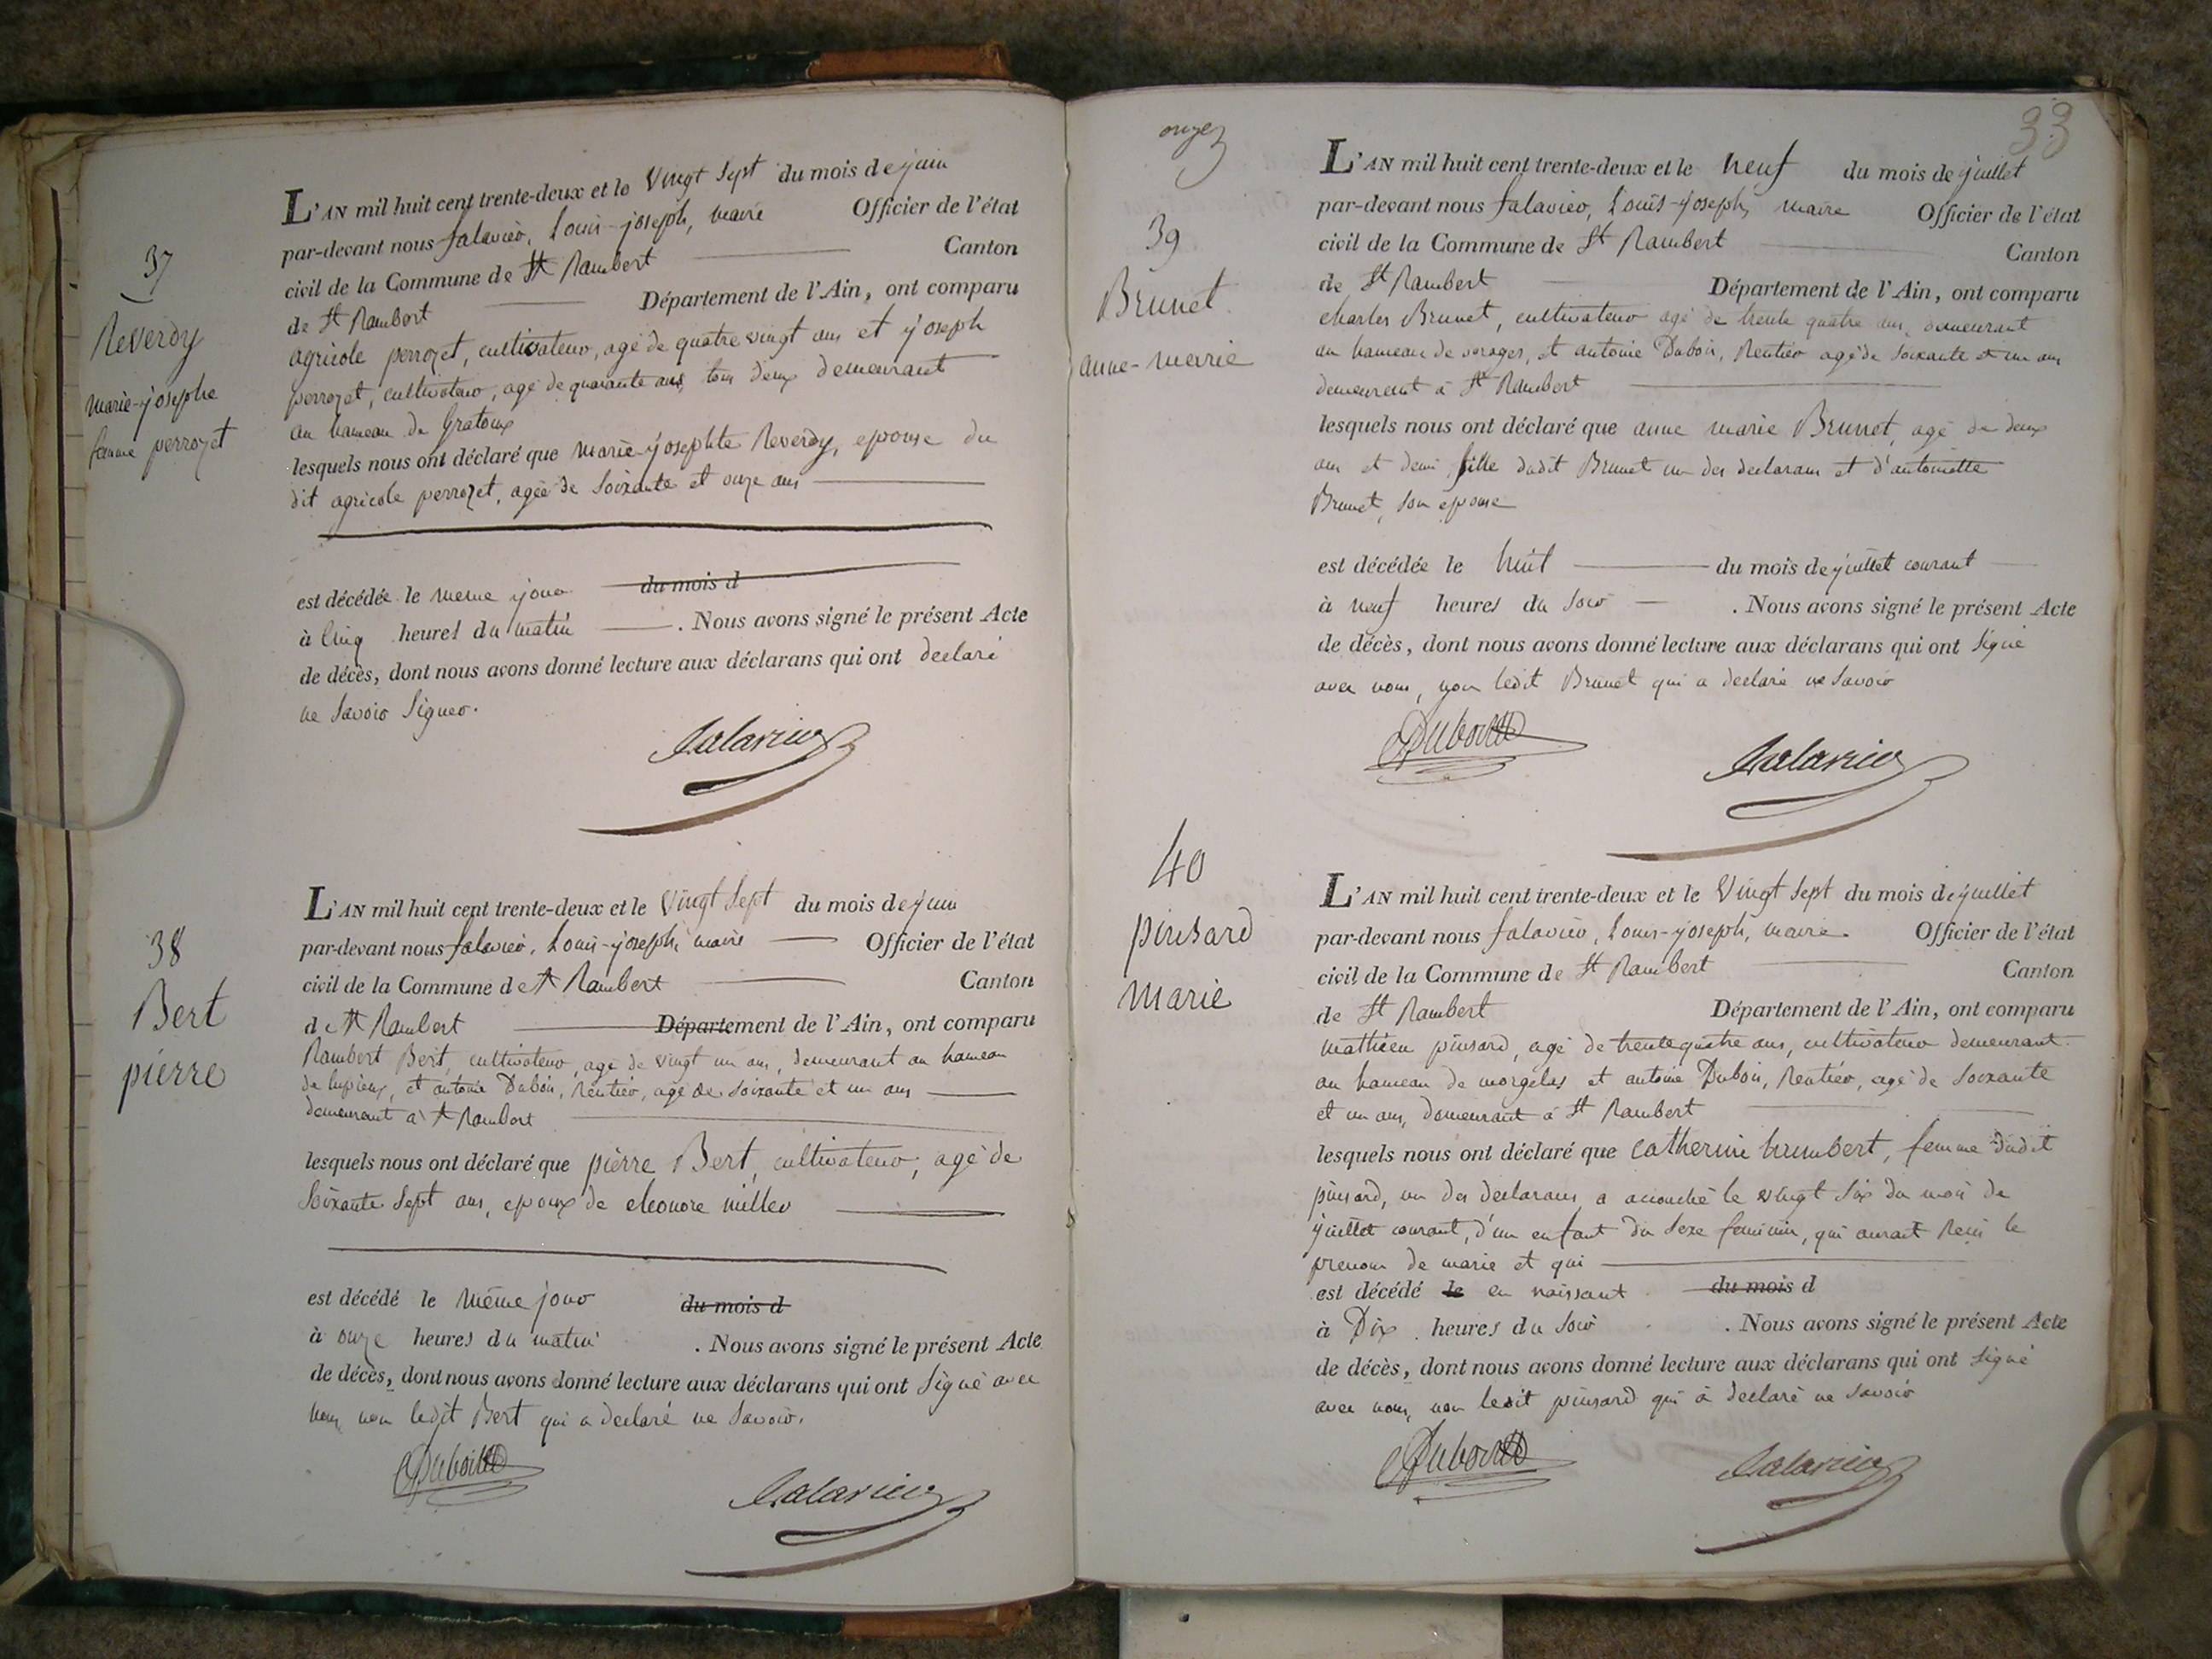 37
Reverdy
marie-josephe
femme perrozet
L'AN mil huit cent trente-deux et le vingt sept du mois de juin
par-devant nous falavier, Louis-joseph, maire Officier de l'état
civil de la Commune de St Rambert Canton
de St Rambert Département de l'Ain, ont comparu
agricole perrozet, cultivateur, agé de quatre vingt ans et joseph
perrozet, cultivateur, agé de quarante ans, tous deux demeurant
au hameau de Gratoux
lesquels nous ont déclaré que marie-josephte Reverdy, epouse du
dit agricole perrozet, agée de soixante et onze ans
est décédée le meme jour du mois d
à cinq heures du matin. Nous avons signé le présent Acte
de décès, dont nous avons donné lecture aux déclarans qui ont declaré
ne savoir signer.
38
Bert
pierre
L'AN mil huit cent trente-deux et le vingt sept du mois de juin
par-devant nous falavier, Louis-joseph, maire Officier de l'état
civil de la Commune de St Rambert Canton
de St Rambert Département de l'Ain, ont comparu
Rambert Bert, cultivateur, agé de vingt un ans, demeurant au hameau
de lupieux, et antoine Dubois, Rentier, agé de soixante et un ans
demeurant à St Rambert
lesquels nous ont déclaré que pierre Bert, cultivateur, agé de
soixante sept ans, epoux de eleonore millev
est décédé le même jour du mois d
à onze heures du matin. Nous avons signé le présent Acte
de décès, dont nous avons donné lecture aux déclarans qui ont signé avec
nous, non ledit Bert qui a declaré ne savoir.
Dubois
33
onze
39
Brunet
anne-marie
L'AN mil huit cent trente-deux et le neuf du mois de juillet
par-devant nous falavier, Louis-joseph, maire Officier de l'état
civil de la Commune de St Rambert Canton
de St Rambert Département de l'Ain, ont comparu
charles Brunet, cultivateur agé de trente quatre ans, demeurant
au hameau de vorages, et antoine Dubois, Rentier agé de soixante et un ans
demeurant à St Rambert
lesquels nous ont déclaré que anne marie Brunet, agé de deux
ans et demi fille dudit Brunet un des declarans et d'antoinette
Brunet, son epouse
est décédée le huit du mois de juillet courant
à neuf heures du soir. Nous avons signé le présent Acte
de décès, dont nous avons donné lecture aux déclarans qui ont signé
avec nous, non ledit Brunet qui a declaré ne savoir
Dubois
40
pinsard
marie
L'AN mil huit cent trente-deux et le vingt sept du mois de juillet
par-devant nous falavier, Louis-joseph, maire. Officier de l'état
civil de la Commune de St Rambert Canton
de St Rambert Département de l'Ain, ont comparu
mathieu pinsard, agé de trente quatre ans, cultivateur demeurant
au hameau de morgelas et antoine Dubois, Rentier, agé de soixante
et un ans, demeurant à St Rambert
lesquels nous ont déclaré que catherine humbert, femme dudit
pinsard, un des declarans, a accouché le vingt six du mois de
juillet courant, d'un enfant du sexe feminin, qui aurait reçu le
prenom de marie et qui
est décédé le en naissant du mois d
à Dix heures du soir. Nous avons signé le présent Acte
de décès, dont nous avons donné lecture aux déclarans qui ont signé
avec nous, non ledit pinsard qui à declaré ne savoir
Dubois